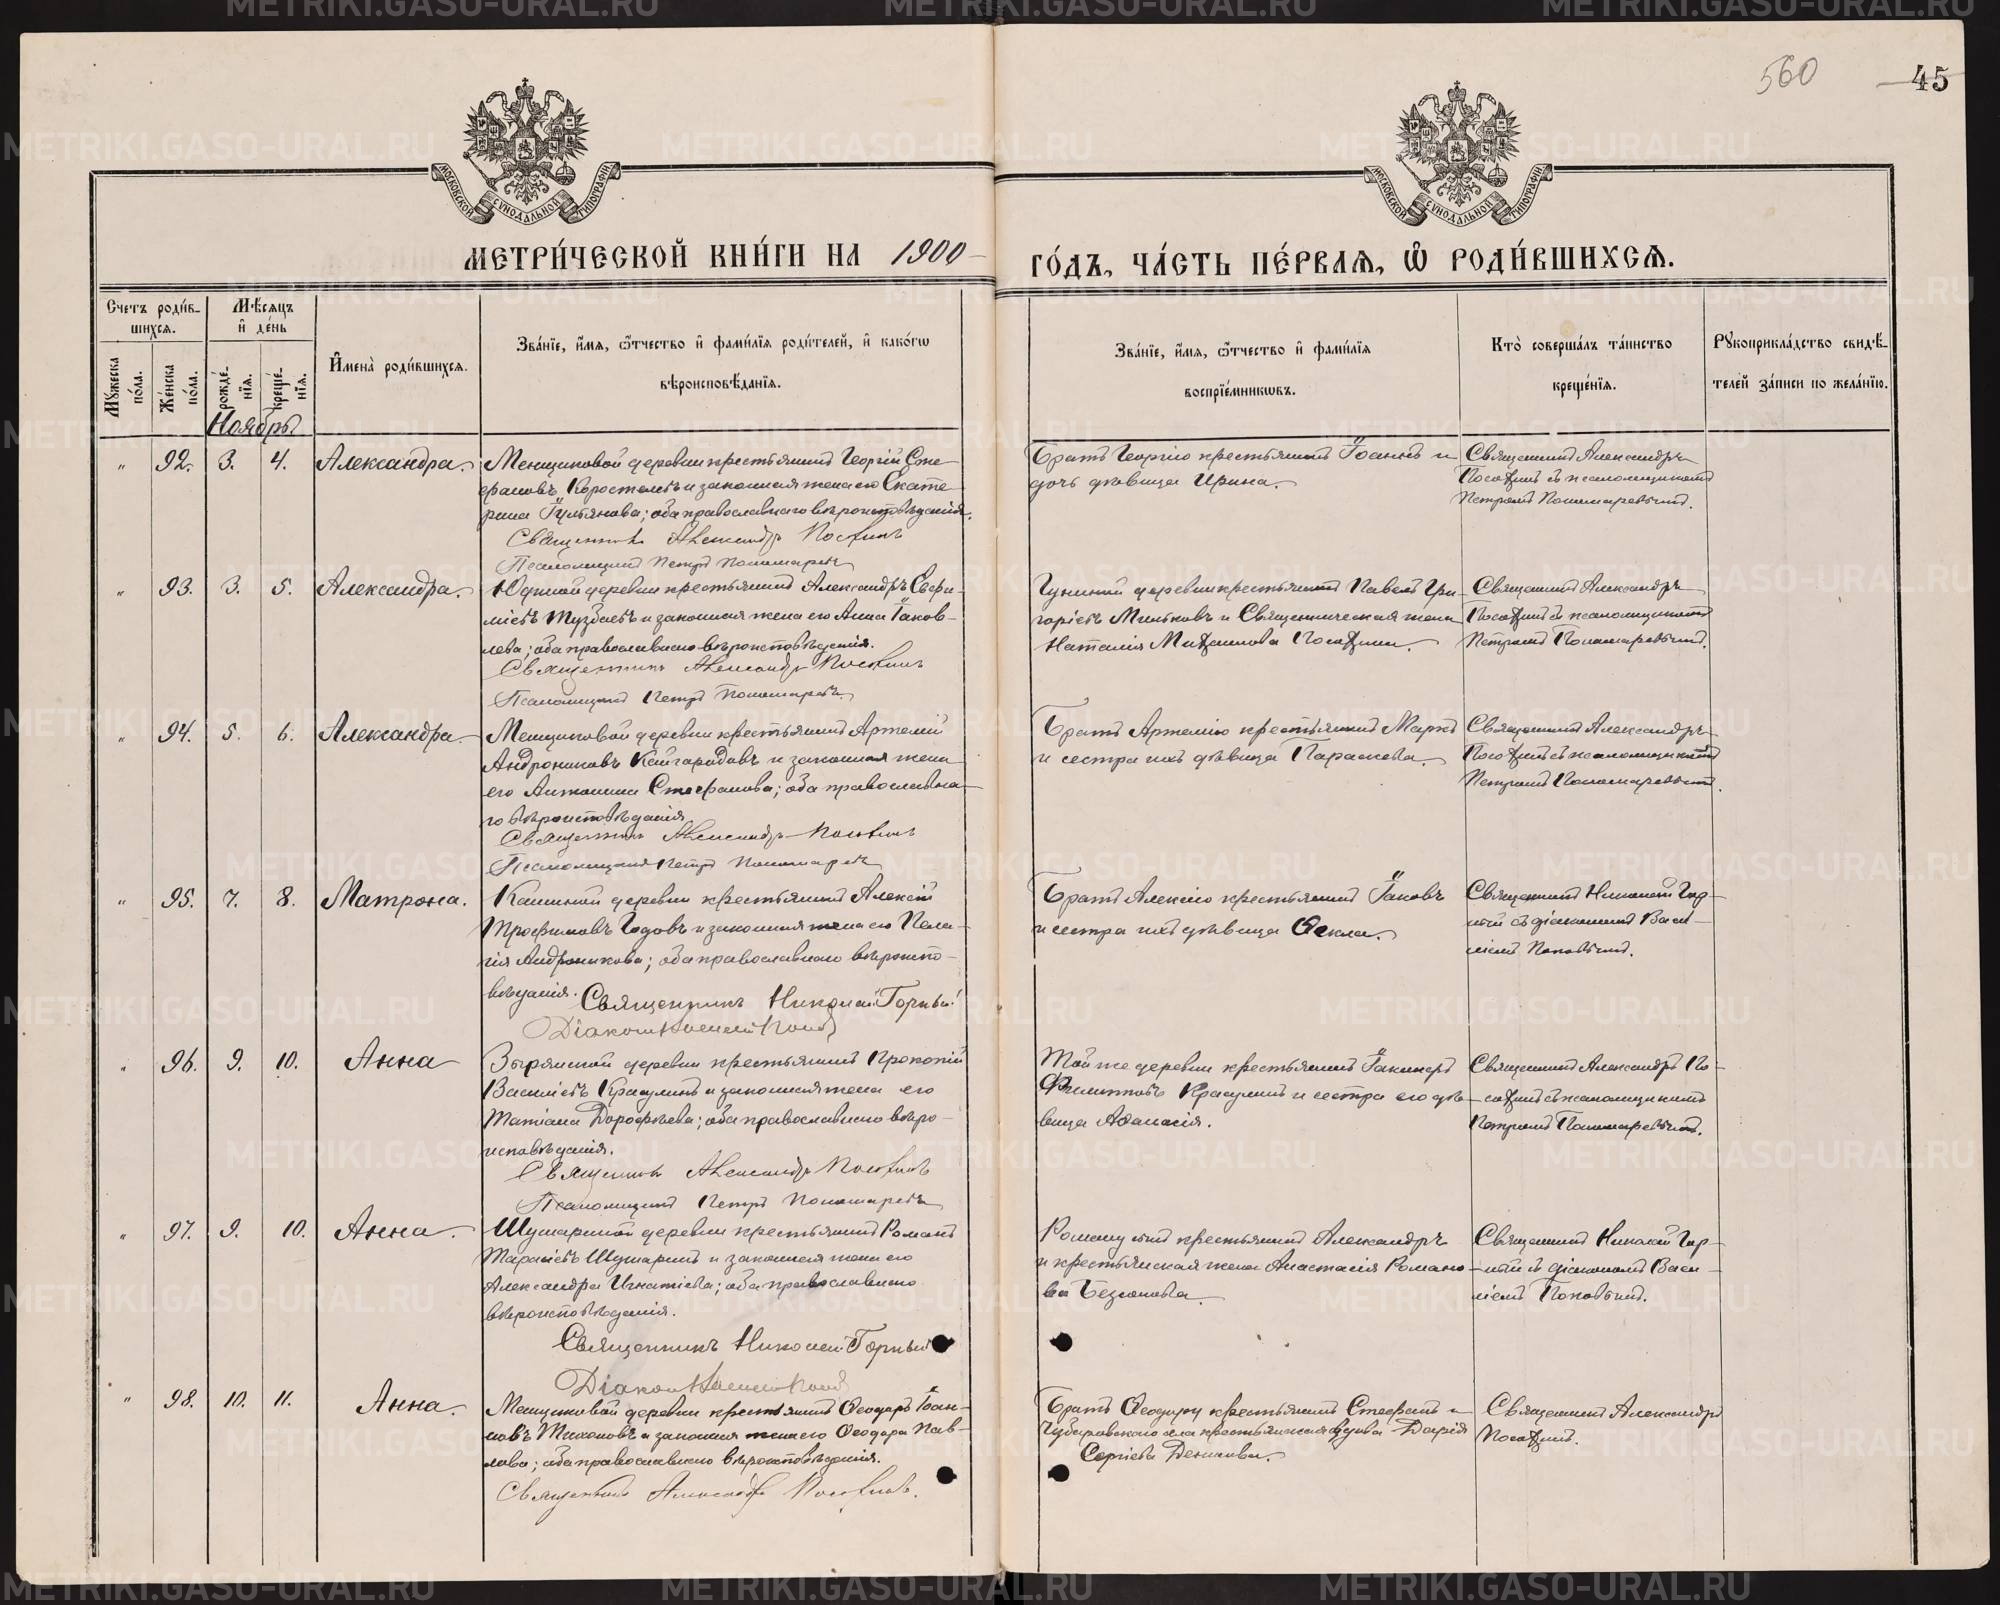 560
45
МОСКОВСКОЙ СѴНОДАЛЬНОЙ ТИПОГРАФІИ
МОСКОВСКОЙ СѴНОДАЛЬНОЙ ТИПОГРАФІИ
МЕТРИ́ЧЕСКОЙ КНИ́ГИ НА 1900 ГО́ДЪ, ЧА́СТЬ ПЕ́РВАѦ, Ѡ҆ РОДИ́ВШИХСѦ.
Счетъ роди́в-
шихсѧ.
Мѣ́сѧцъ
и҆ де́нь
Мꙋ́жеска по́ла.
Же́нска по́ла.
рожде́-нїѧ.
креще́-нїѧ.
И҆мена̀ роди́вшихсѧ.
Зва́нїе, и҆́мѧ, ѻ҆́тчество и҆ фами́лїѧ роди́телей, и҆ како́гѡ
вѣроисповѣ́данїѧ.
Зва́нїе, и҆́мѧ, ѻ҆́тчество и҆ фами́лїѧ
воспрїе́мникѡвъ.
Кто̀ соверша́лъ та́инство
креще́нїѧ.
Рꙋкоприкла́дство свидѣ́-
телей за́писи по жела́нїю.
Ноябрь
" 92. 3. 4. Александра.
Менщиковой деревни крестьянинъ Георгій Сте-
фановъ Коростелевъ и законная жена его Екате-
рина; оба православнаго вѣроисповѣданія.
Священникъ Александръ Посохинъ
Псаломщикъ Петръ Пономаревъ
Братъ Георгію крестьянинъ Іоаннъ и
дочь дѣвица Ирина.
Священникъ Александръ
Посохинъ съ псаломщикомъ
Петромъ Пономаревымъ.
" 93. 3. 5. Александра.
Юдиной деревни крестьянинъ Александръ
и законная жена его Анна Іаков-
лева; оба православнаго вѣроисповѣданія.
Священникъ Александръ Посохинъ
Псаломщикъ Петръ Пономаревъ.
деревни крестьянинъ Павелъ Гри-
горіевъ Мильковъ и Священническая жена
Наталія Посохина.
Священникъ Александръ
Посохинъ съ псаломщикомъ
Петромъ Пономаревымъ.
" 94. 5. 6. Александра
Менщиковой деревни крестьянинъ Артемій
Андрониковъ Кайгородовъ и законная жена
его Антонина Стефанова; оба православна-
го вѣроисповѣданія
Священникъ Александръ Посохинъ
Псаломщикъ Петръ Пономаревъ
Братъ Артемію крестьянинъ Маркъ
и сестра ихъ дѣвица Параскева.
Священникъ Александръ
Посохинъ съ псаломщикомъ
Петромъ Пономаревымъ.
" 95. 7. 8. Матрона.
деревни крестьянинъ Алексій
Трофимовъ Годовъ и законная жена его Пела-
гія Андроникова; оба православнаго вѣроиспо-
вѣданія. Священникъ Николай Горный
Діаконъ Василій Поповъ
Братъ Алексію крестьянинъ Іаковъ
и сестра ихъ дѣвица Ѳекла.
Священникъ Николай Гор-
ный съ діакономъ Васи-
ліемъ Поповымъ.
" 96. 9. 10. Анна
Зырянской деревни крестьянинъ Прокопій
Василіевъ Красулинъ и законная жена его
Татіана Дорофѣева; оба православнаго вѣро-
исповѣданія.
Священникъ Александръ Посохинъ
Псаломщикъ Петръ Пономаревъ
Той же деревни крестьянинъ
Филипповъ Красулинъ и сестра его дѣ-
вица Аѳанасія.
Священникъ Александръ По-
сохинъ съ псаломщикомъ
Петромъ Пономаревымъ.
" 97. 9. 10. Анна.
Шумариной деревни крестьянинъ Романъ
Тарасіевъ Шумаринъ и законная жена его
Александра Игнатіева; оба православнаго
вѣроисповѣданія.
Священникъ Николай Горный
Діаконъ Василій Поповъ
Роману сынъ крестьянинъ Александръ
и крестьянская жена Анастасія Романо-
ва
Священникъ Николай Гор-
ный съ діакономъ Васи-
ліемъ Поповымъ.
" 98. 10. 11. Анна.
Менщиковой деревни крестьянинъ Ѳеодоръ Іоан-
новъ Тихоновъ и законная жена его Ѳеодора Пав-
лова; оба православнаго вѣроисповѣданія.
Священникъ Александръ Посохинъ.
Братъ Ѳеодору крестьянинъ Стефанъ и
села крестьянская вдова Дарія
Сергіева
Священникъ Александръ
Посохинъ.
METRIKI.GASO-URAL.RU